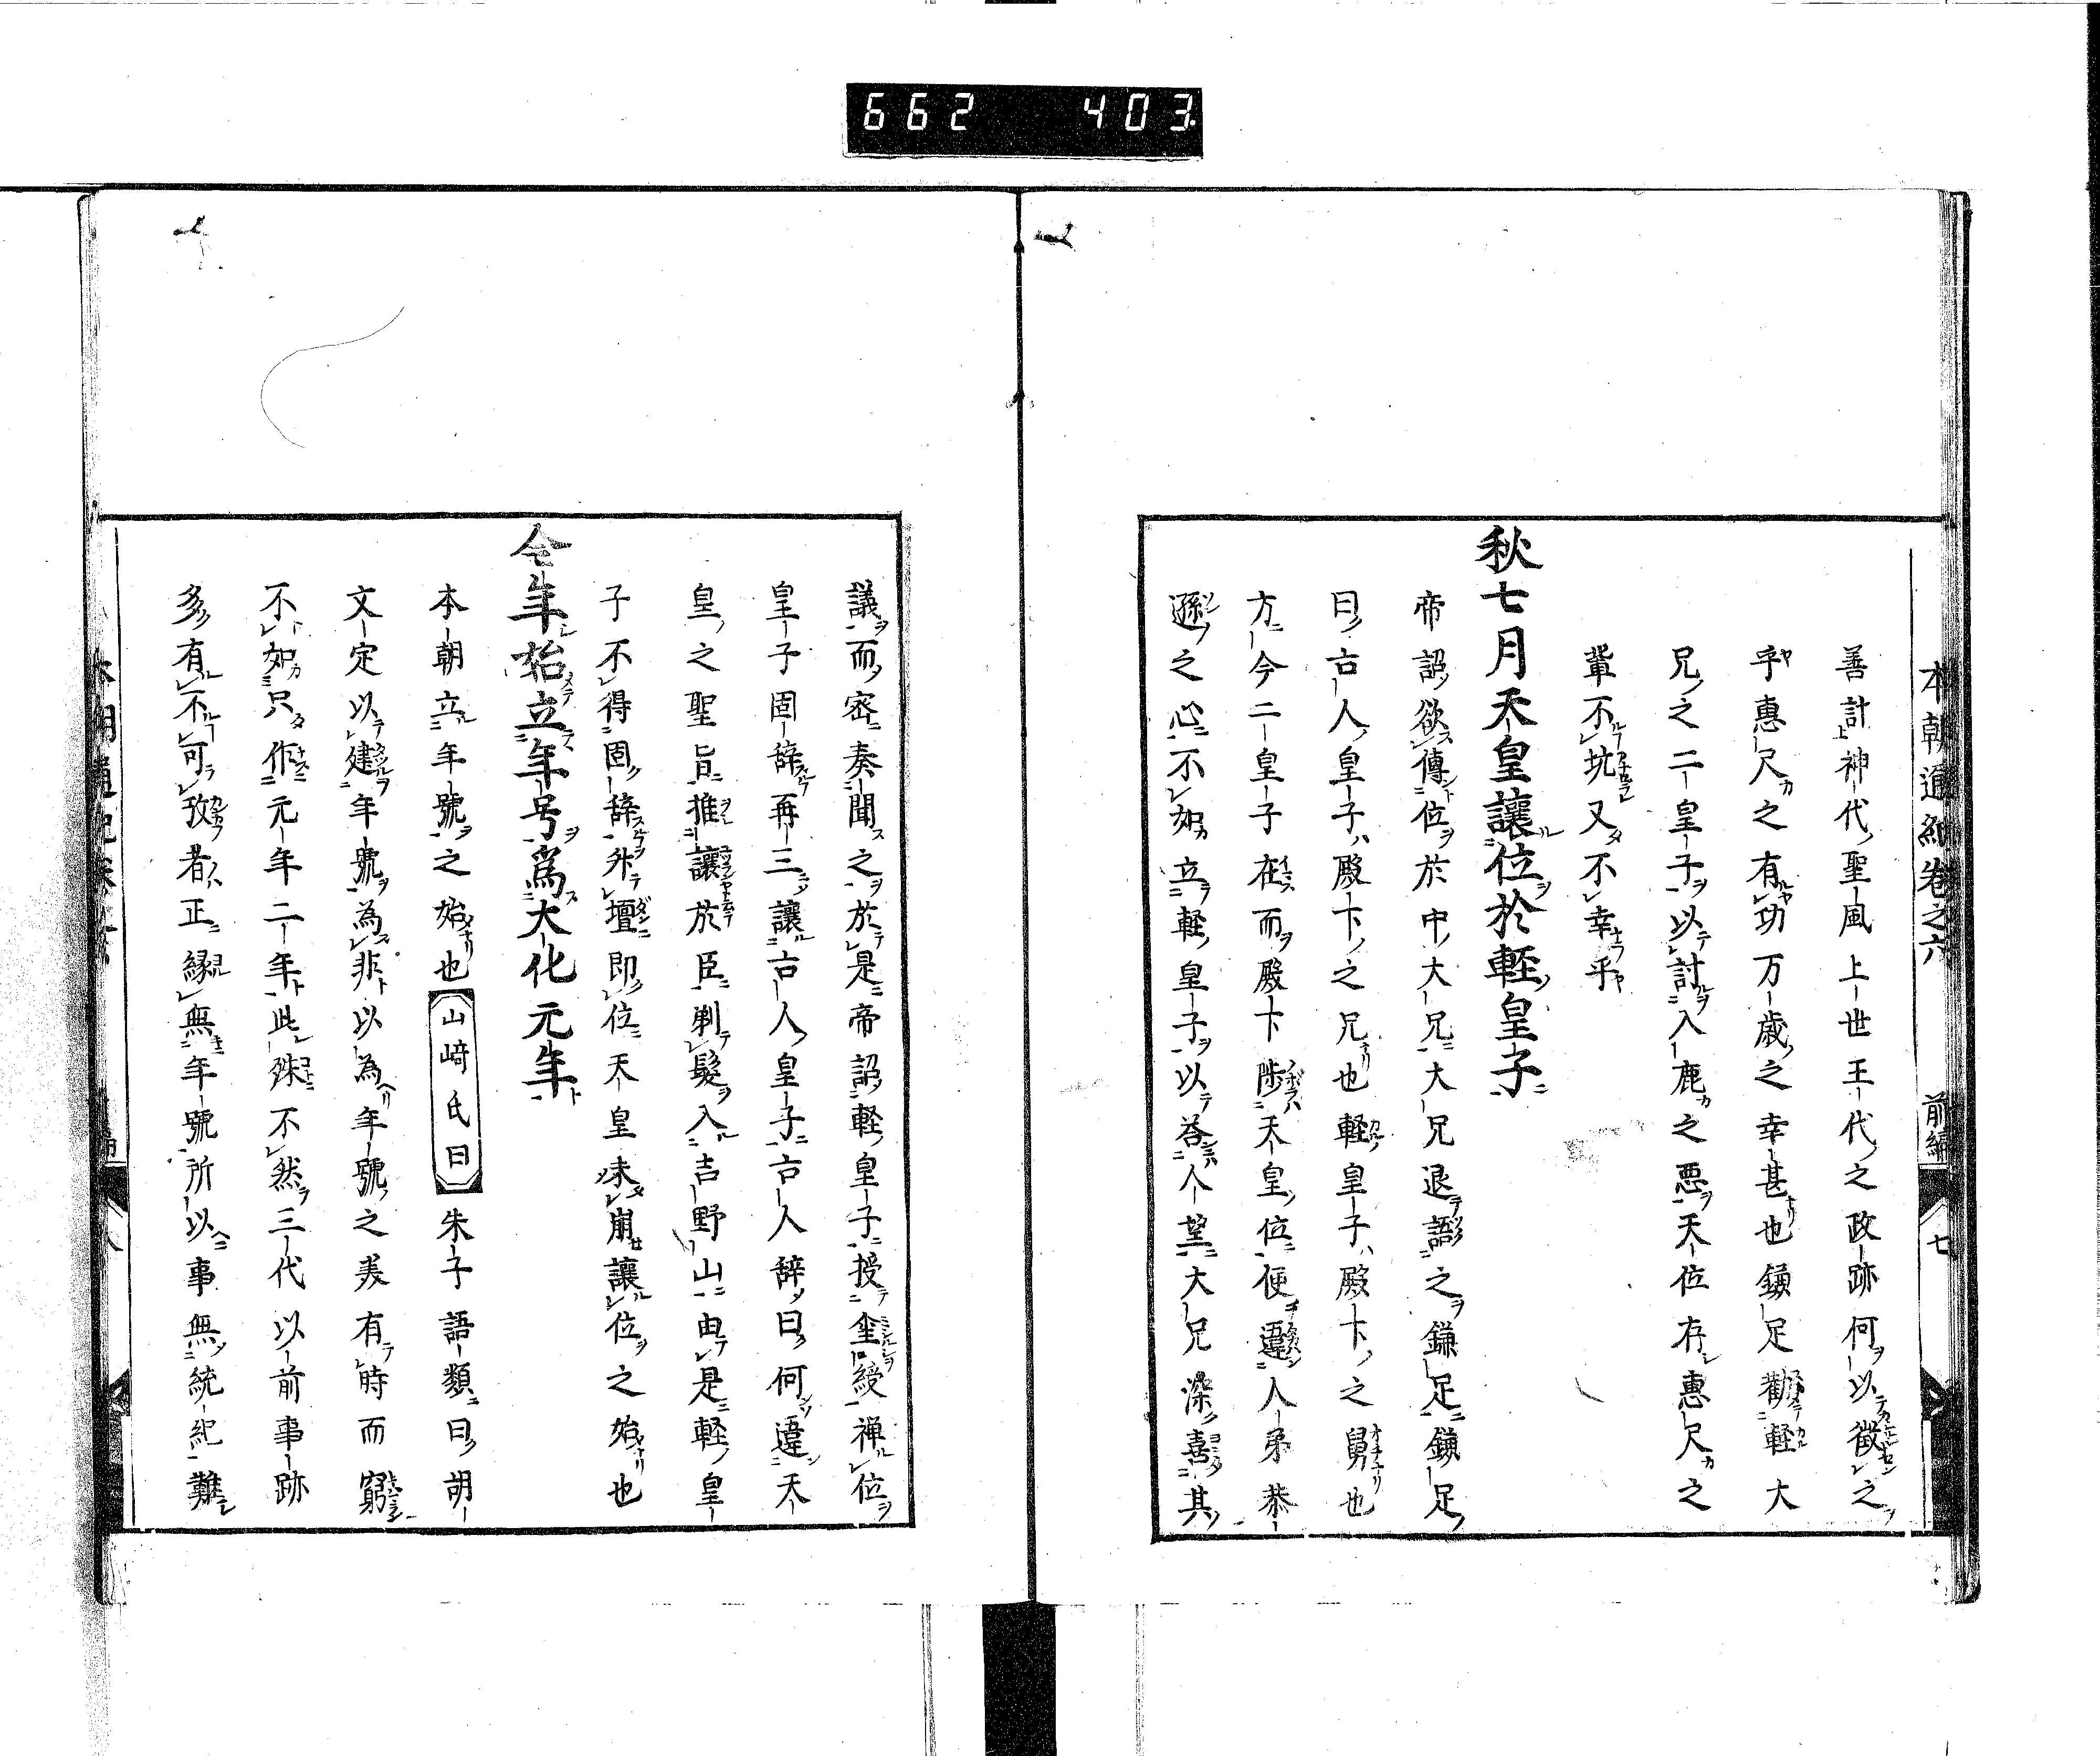 662 403
本朝通紀卷之六 前編 七
善計神代聖風上世王代之政跡何以徴之
乎惠尺之有功万歳之幸甚也鎌足勸輕大
兄之二皇子以討入鹿之悪天位存惠尺之
輩不坑又不幸乎
秋七月天皇讓位於輕皇子
帝詔欲傳位於中大兄大兄退語之鎌足鎌足
曰古人皇子殿下之兄也輕皇子殿下之舅也
方今二皇子在而殿下陟天皇位便違人弟恭
遜之心不如立軽皇子以荅人望大兄深喜其
議而密奏聞之於是帝詔軽皇子授璽綬禅位
皇子固辞再三讓古人皇子古人辞曰何違天
皇之聖旨推讓於臣剃髮入吉野山由是軽皇
子不得固辞升壇即位天皇未崩讓位之始也
今年始立年号爲大化元年
本朝立年號之始也 山﨑氏曰 朱子語類曰胡
文定以建年號為非以為年號之美有時而窮
不如只作元年二年此殊不然三代以前事跡
多有不可攷者正縁無年號所以事無統紀難